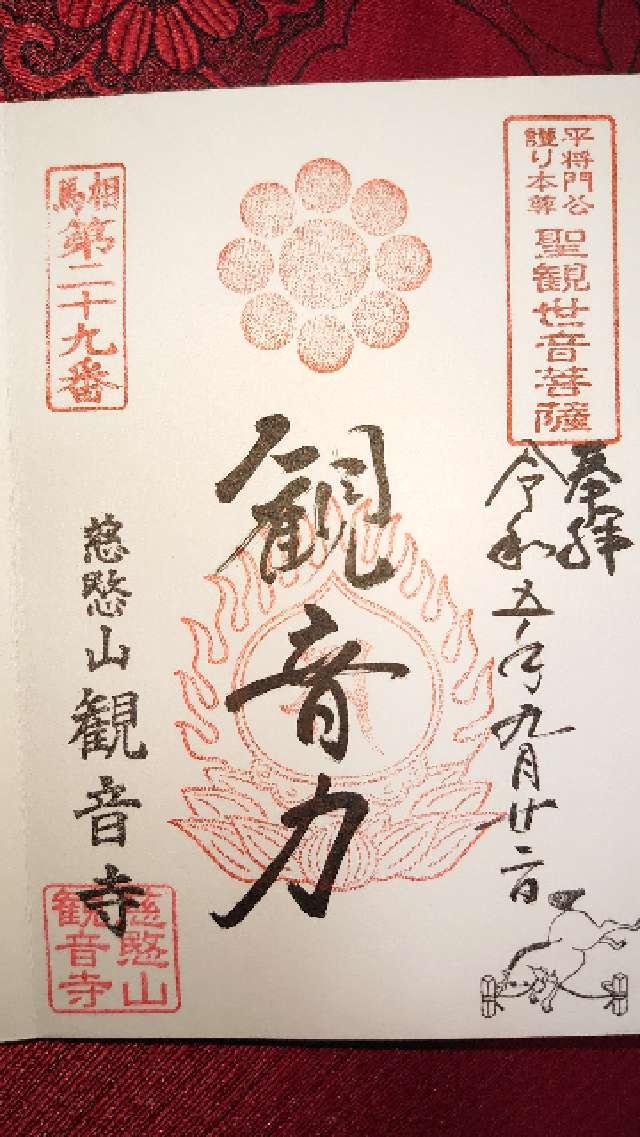 平将門公
護り本尊
聖観世音菩薩
奉拝
令和五年九月廿二日
観音力
相馬
第二十九番
慈愍山観音寺
慈愍山
観音寺